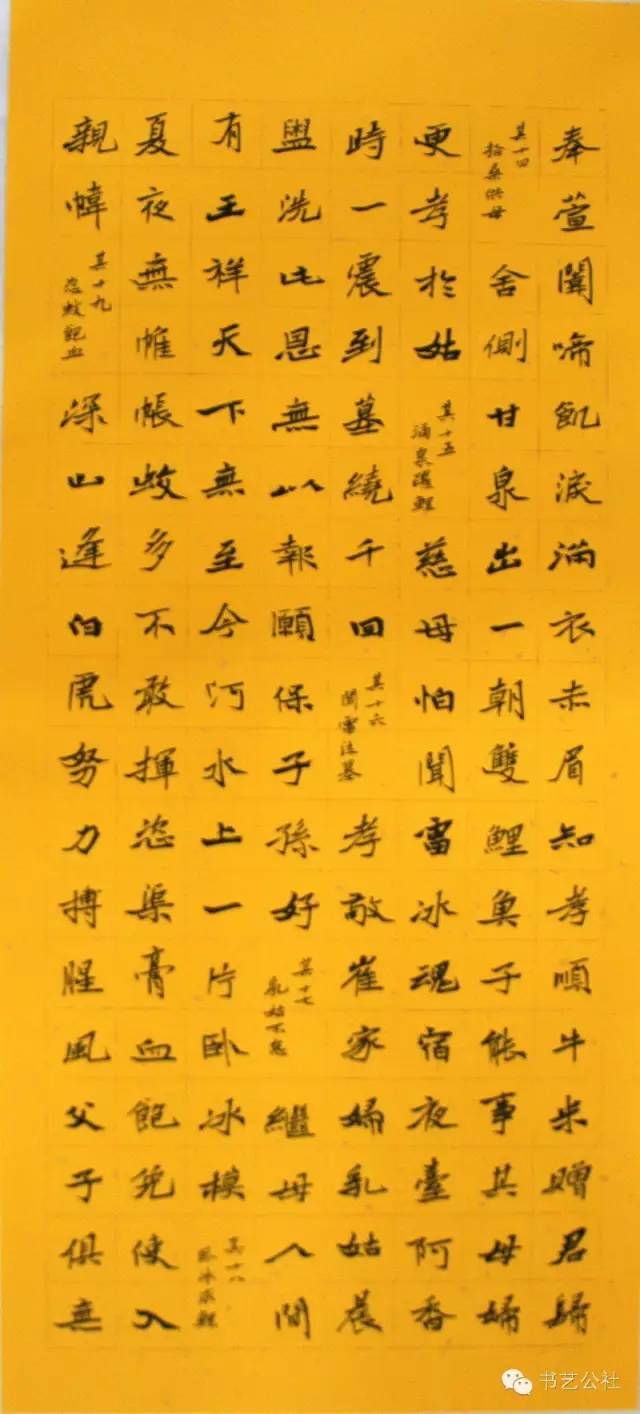 奉萱闈啼飢淚滿衣赤眉知孝順牛米贈君歸
其十四
拾桑供母
舍側甘泉出一朝雙鯉魚子能事其母婦
更孝於姑
其十五
涌泉躍鯉
慈母怕聞雷冰魂宿夜臺阿香
時一震到墓繞千回
其十六
聞雷泣墓
孝敬崔家婦乳姑晨
盥洗此恩無以報願保子孫好
其十七
乳姑不怠
繼母人間
有王祥天下無至今河水上一片臥冰模
其十八
臥冰求鯉
夏夜無帷帳蚊多不敢揮恣渠膏血飽免使入
親幃
其十九
恣蚊飽血
深山逢白虎努力搏腥風父子俱無
书艺公社